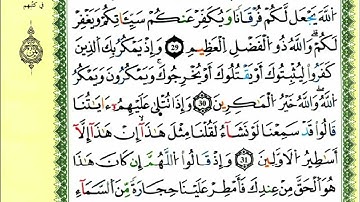 في كتبهم
اللَّهَ يَجْعَل لَّكُمْ فُرْقَانًا وَيُكَفِّرْ عَنكُمْ سَيِّئَاتِكُمْ وَيَغْفِرْ
لَكُمْ وَاللَّهُ ذُو الْفَضْلِ الْعَظِيمِ 29 وَإِذْ يَمْكُرُ بِكَ الَّذِينَ
كَفَرُوا لِيُثْبِتُوكَ أَوْ يَقْتُلُوكَ أَوْ يُخْرِجُوكَ وَيَمْكُرُونَ وَيَمْكُرُ
اللَّهُ وَاللَّهُ خَيْرُ الْمَاكِرِينَ 30 وَإِذَا تُتْلَى عَلَيْهِمْ ءَايَاتُنَا
قَالُوا قَدْ سَمِعْنَا لَوْ نَشَاءُ لَقُلْنَا مِثْلَ هَذَا إِنْ هَذَا إِلَّا
أَسَاطِيرُ الْأَوَّلِينَ 31 وَإِذْ قَالُوا اللَّهُمَّ إِن كَانَ هَذَا
هُوَ الْحَقَّ مِنْ عِندِكَ فَأَمْطِرْ عَلَيْنَا حِجَارَةً مِّنَ السَّمَاءِ